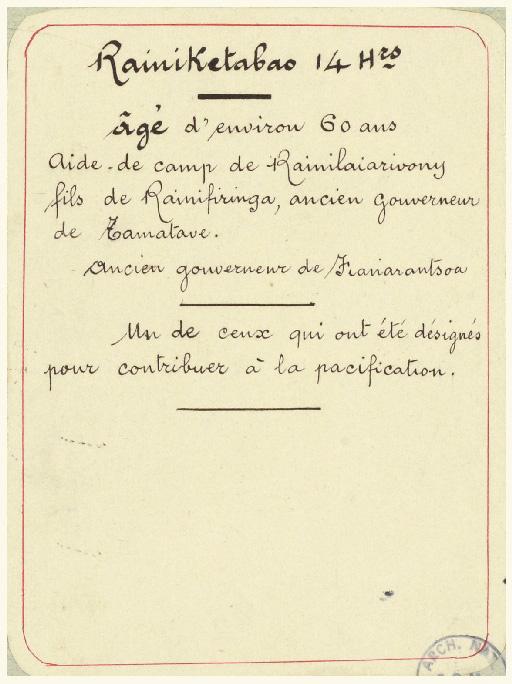 Rainiketabao 14 Hrs
âgé d'environ 60 ans
Aide-de camp de Rainilaiarivony
fils de Rainifiringa, ancien gouverneur
de Tamatave.
Ancien gouverneur de Fianarantsoa
Un de ceux qui ont été désignés
pour contribuer à la pacification.
ARCH. NAT